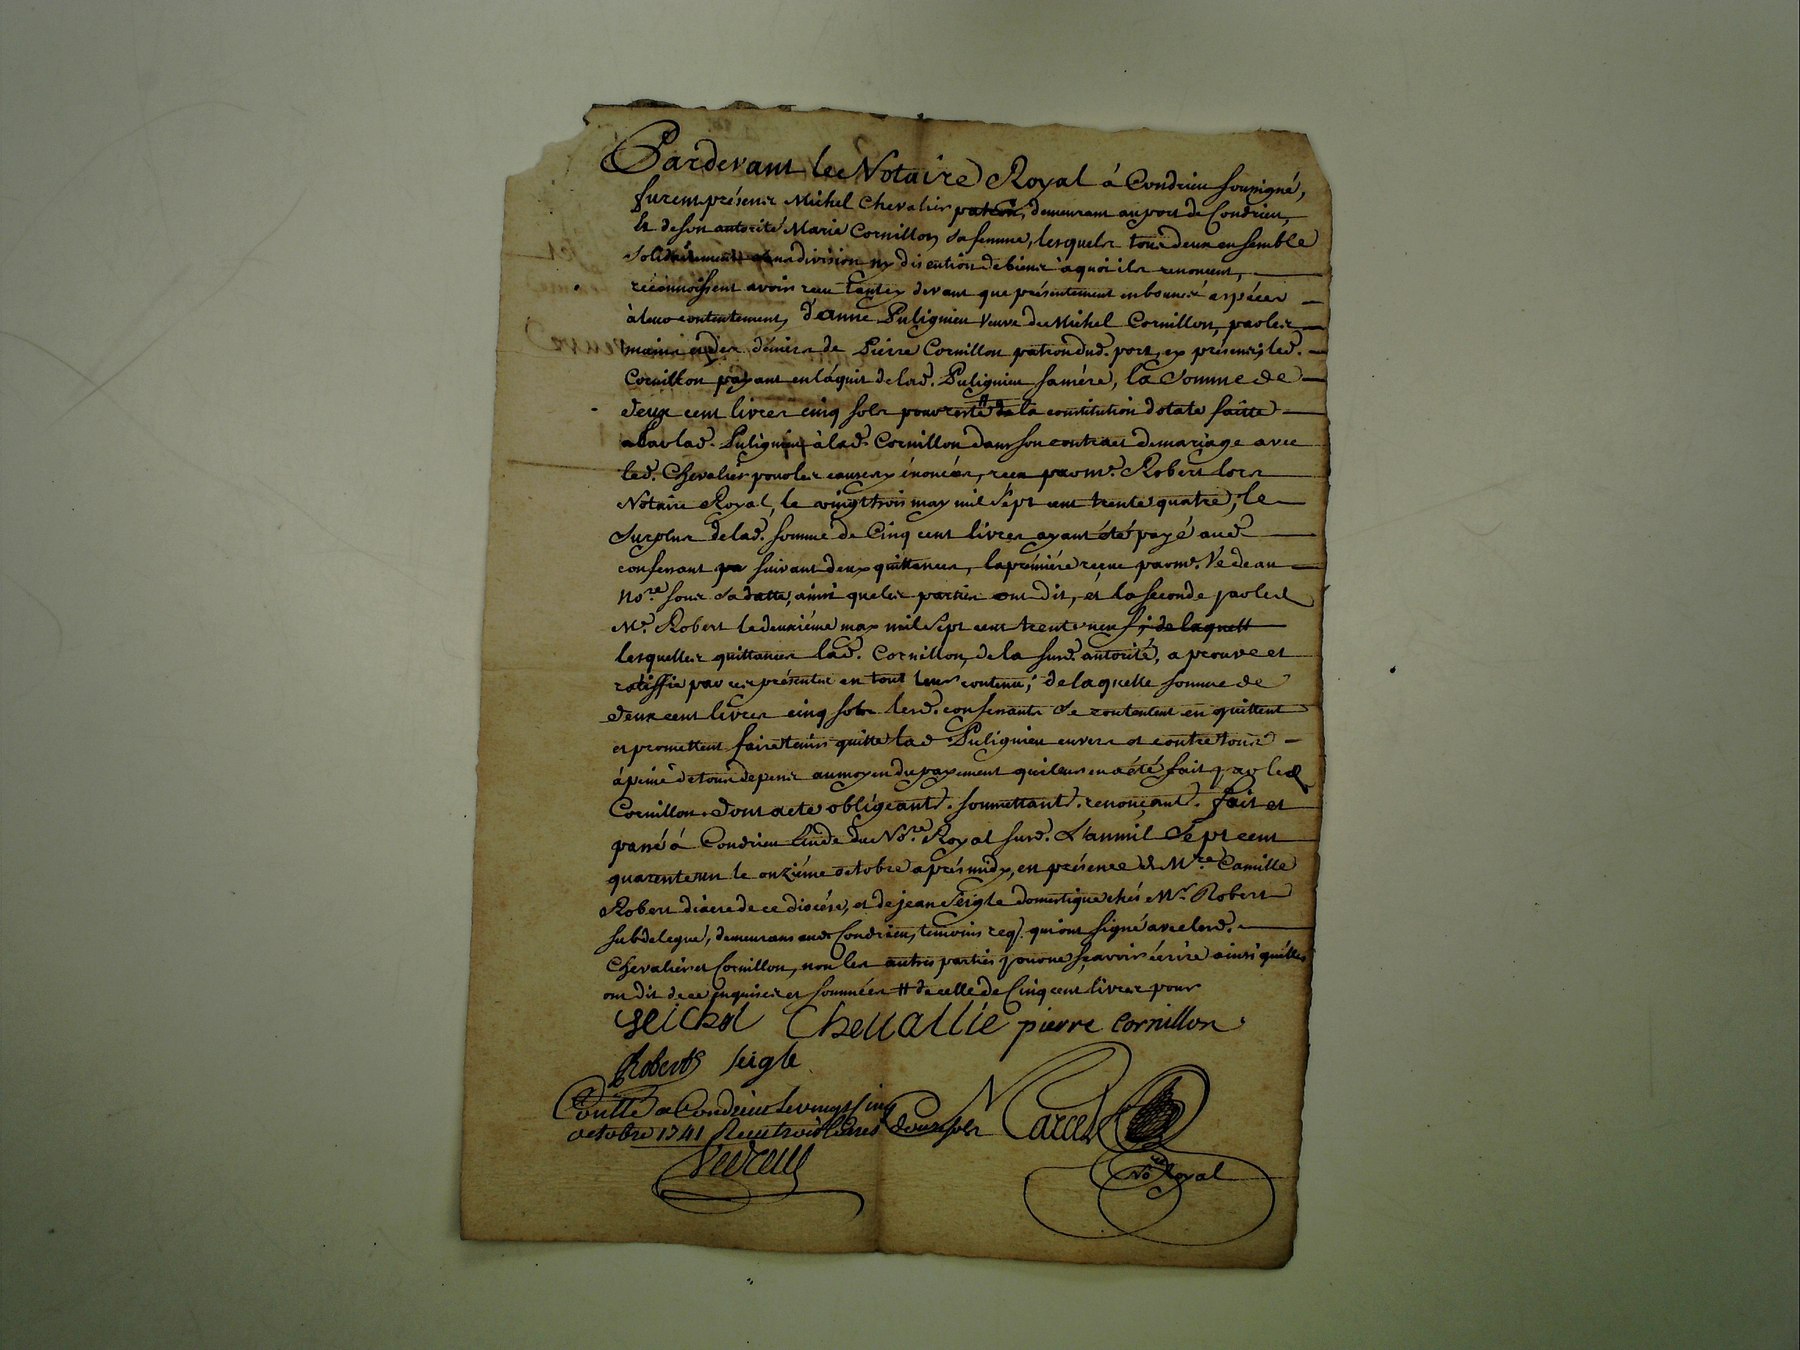 Pardevant le Notaire Royal à Condrieu soussigné,
furent présents Michel Chevalier patron, demeurant au port de Condrieu,
Et de son autorité Marie Cornillon sa femme, lesquels tous deux ensemble
solidairement sans division ny discution de biens à quoi ils renoncent,
réconnoissent avoir reçu tant cy devant que présentement en bonnes espéces
à leur contentement, d'anne Pulignieu Veuve de Michel Cornillon, par les
mains et des déniers de Pierre Cornillon patron dud. port, cy présent, led.
Cornillon payant en l'aquit de lad. Pulignieu sa mére, la somme de
deux cent livres cinq sols pour reste # de la constitution dotale faitte
par lad. Pulignieu à lad. Cornillon dans son contract de mariage avec
led. Chevalier pour les causes y énoncées, reçu par me. Robert lors
Notaire Royal, le vingt trois may mil sept cent trente quatre, le
surplus de lad. somme de Cinq cent livres ayant été payé aud.
confessant suivant deux quittances, la prémiére reçue par me. Vedeau
nore. sous sa datte, ainsi que les parties ont dit, et la seconde par led.
Me. Robert le deuxiéme may mil sept cent trente neuf, de laquelle
lesquelles quittances lad. Cornillon, de la susd. autorité, aprouve et
ratiffie par ces présentes en tout leur contenu; de laquelle somme de
deux cent livres cinq sols lesd. confessants se contentent en quittent
et promettent faire tenir quitte lad. Pulignieu envers et contre tous
à peine de tous depens au moyen du payement qui leur en a été fait par led.
Cornillon. dont acte obligeant. soumettant. renonçant. fait et
passé à Condrieu Etude du Nore. Royal susd. L'an mil sept cent
quarente un le onziéme octobre aprés midy, en présence de Mre. Camille
Robert diacre de ce diocése, et de jean Seigle domestique chés Mr. Robert
subdelegué, demeurans aud. Condrieu, temoins req. qui ont signé avec lesd.
Chevalier et Cornillon, non les autres parties pour ne sçavoir écrire ainsi qu'elles
ont dit de ce enquises et sommées # de celle de Cinq cent livres pour
Chevallie pierre Cornillon
Robert Seigle
Contllé a Condrieu le vingt cinq
octobre 1741 Reçu trois livres douze sols Marcel
No Royal